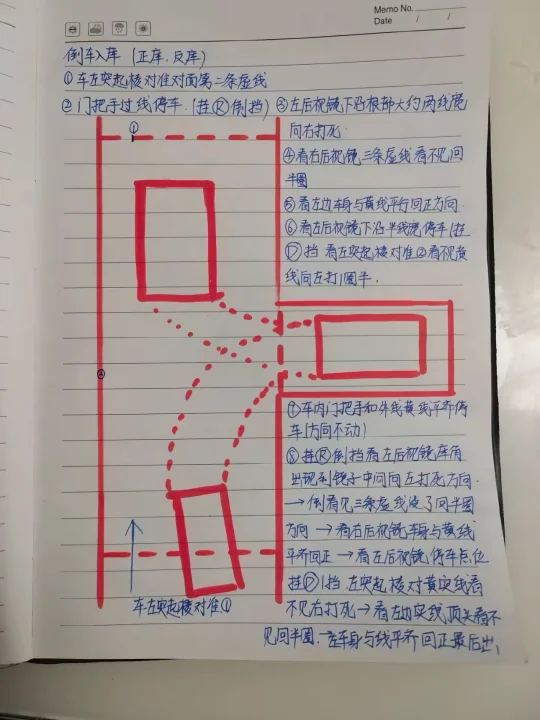 Memo No.
Date / /
倒车入库（正库、反库）
①车左突起棱对准对面第二条虚线
②门把手过线停车.（挂Ⓡ倒挡）
③左后视镜下沿根部大约两线宽
向右打死.
④看右后视镜三条虚线看不见回
半圈
⑤看左边车身与黄线平行回正方向.
⑥看左后视镜下沿半线宽停车(挂
Ⓓ挡 看左突起棱对准②看不见黄
线向左打1圈半.
①
②
⑦车内门把手和外线黄线平齐停
车(方向不动)
⑧挂Ⓡ倒挡看左后视镜库角
出现到镜子中间向左打死方向.
→倒看见三条虚线没了回半圈
方向→看右后视镜车身与黄线
平齐回正→看左后视镜停车点位
挂Ⓓ1挡.左突起棱对黄实线看
不见右打死→看左边实线顶头看不
见回半圈.车身与线平齐回正最后出,
车左突起棱对准①